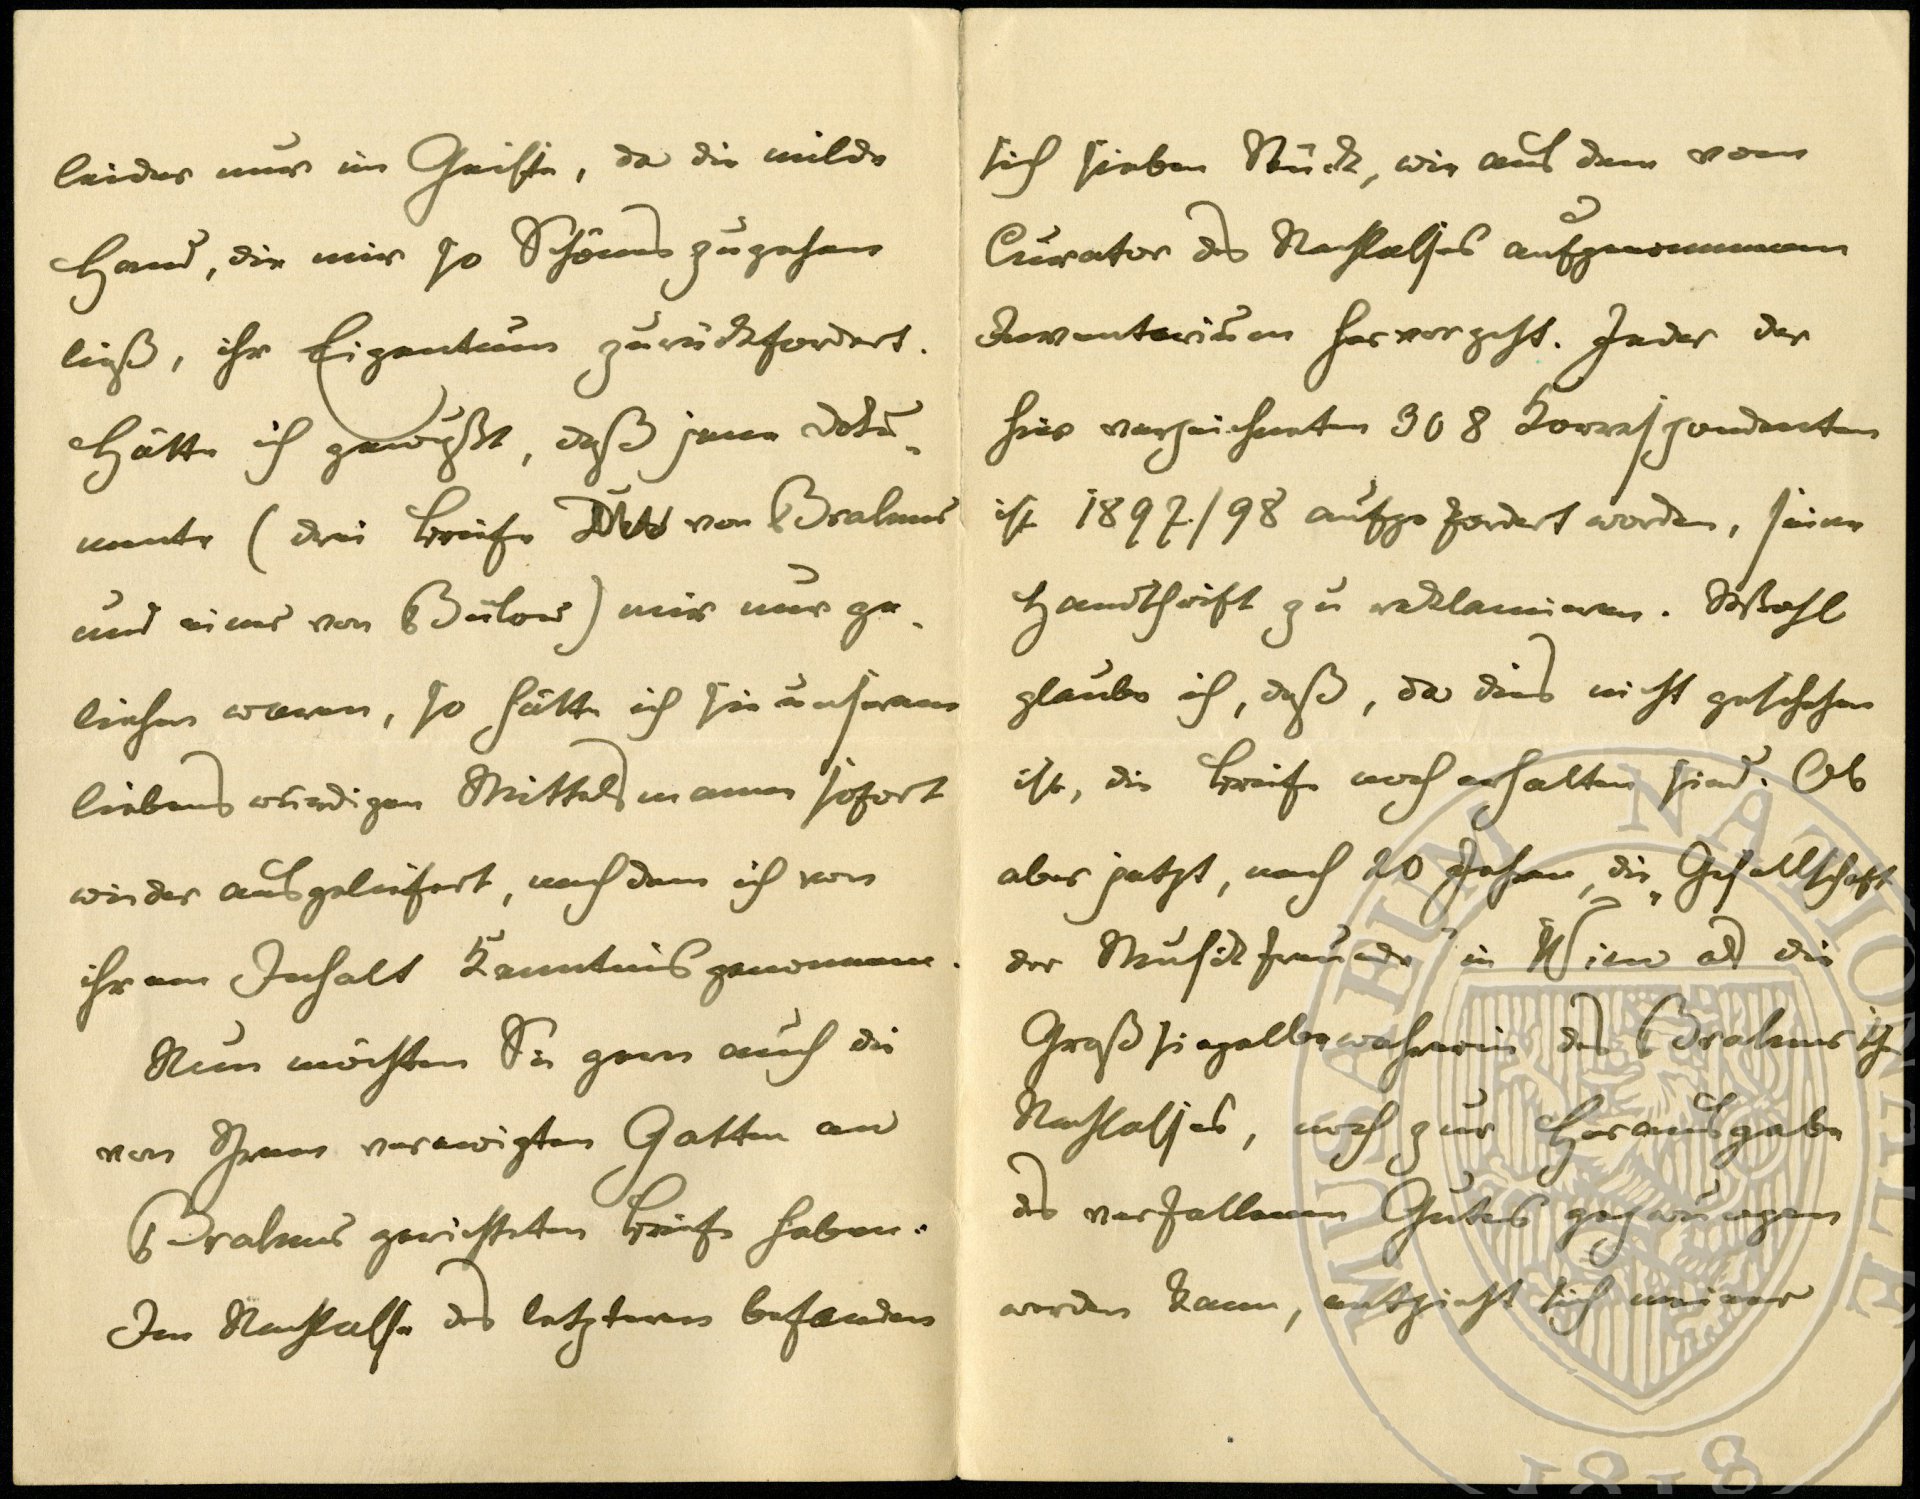 leider nur im Geiste, da die milde
Hand, die mir so Schönes zugehen
ließ, ihr Eigentum zurückfordert.
Hätte ich gewußt, daß jene Doku-
mente (drei Briefe von Brahms
und einer von Bülow) mir nur ge-
liehen waren, so hätte ich sie unserem
liebenswürdigen Mittelsmann sofort
wieder ausgeliefert, nachdem ich von
ihrem Inhalt Kenntnis genommen.
Nun möchten Sie gern auch die
von Ihrem verewigten Gatten an
Brahms gerichteten Briefe haben.
Im Nachlasse des letzteren befanden
sich sieben Stück, wie aus dem vom
Curator des Nachlasses aufgenommenen
Inventarium hervorgeht. Jeder der
hier verzeichneten 308 Korrespondenten
ist 1897/98 aufgefordert worden, seine
Handschrift zu reklamieren. Wohl
glaube ich, daß, da dies nicht geschehen
ist, die Briefe noch erhalten sind. Ob
aber jetzt, nach 20 Jahren, die „Gesellschaft
der Musikfreunde" in Wien als die
Großsiegelbewahrerin des Brahms'schen
Nachlasses, noch zur Herausgabe
des verfallenen Gutes gezwungen
werden kann, entzieht sich meiner
MUSAEUM NATIONALE
1818